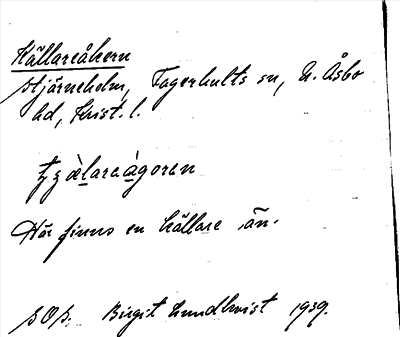 Källareåkern
Stjärneholm, Fagerhults sn, N. Åsbo
hd, Krist. l.
tʒælaraàgoren
Här finns en källare än.
SOS. Birgit Lundkvist 1939.